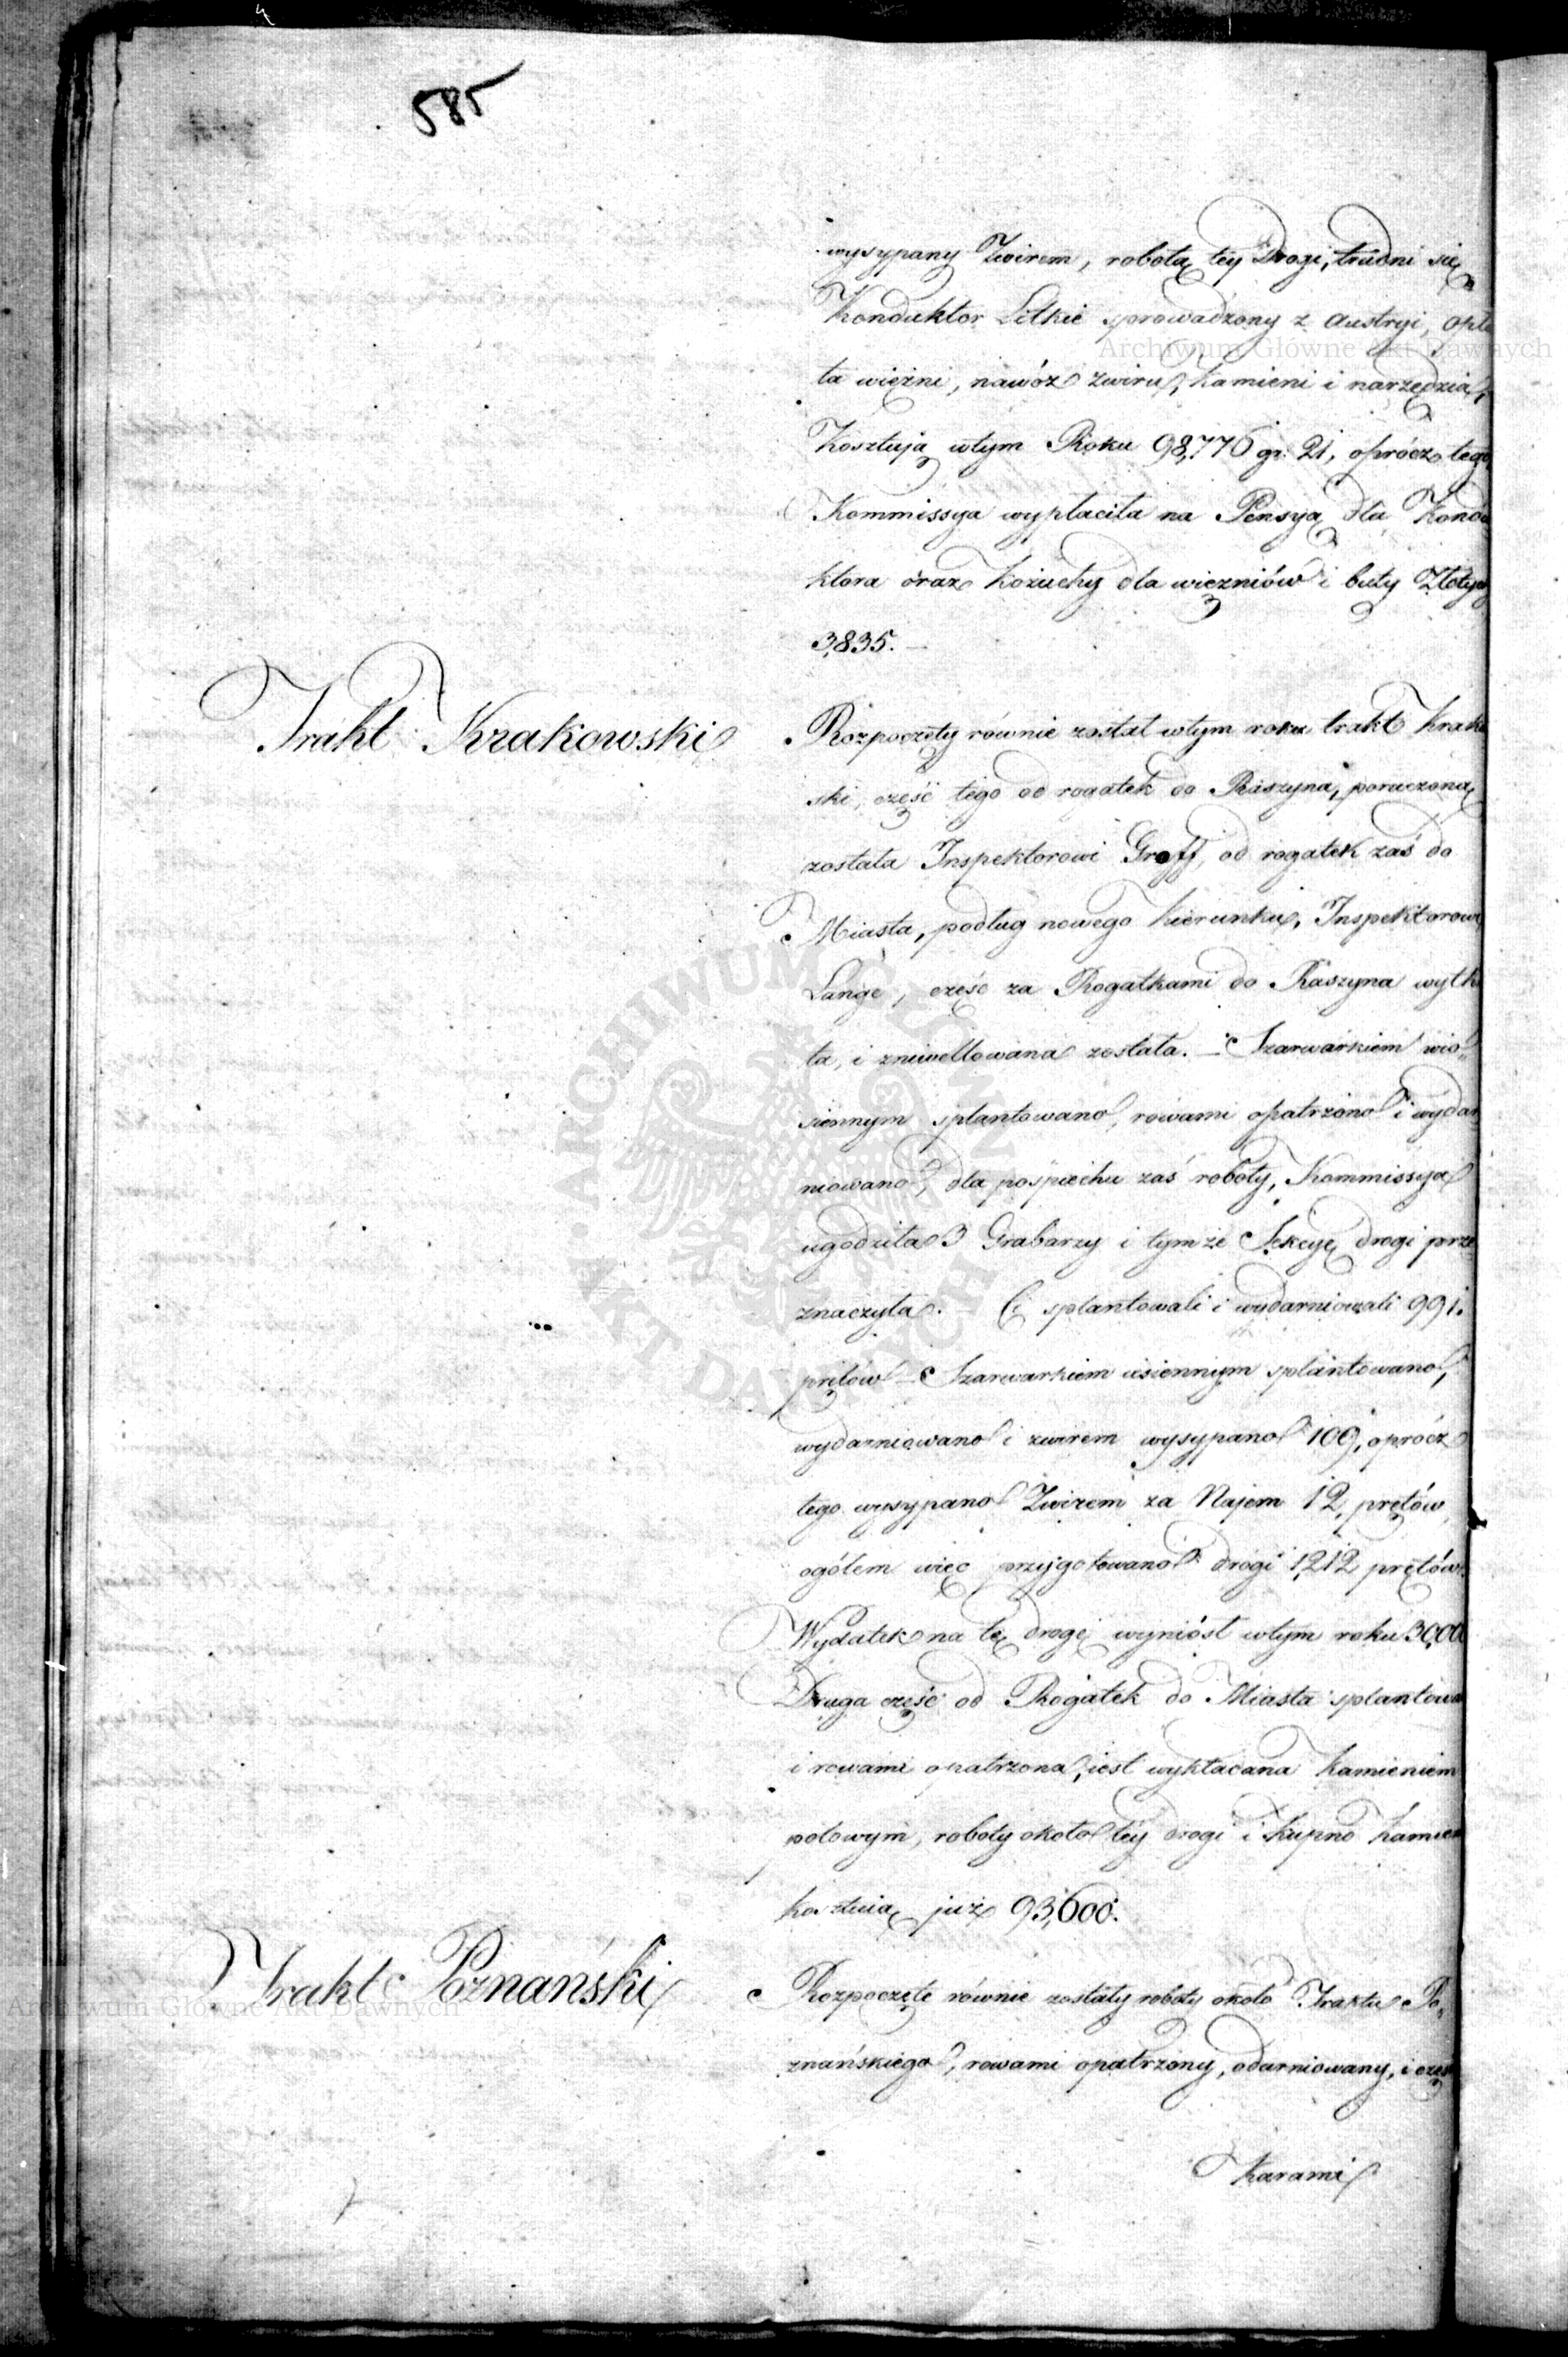 585
wysypany Zwirem, robotą tey Drogi, trudni się
Konduktor Litkie sprowadzony z Austryi, opła
ta więzni, nawóz zwiru, kamieni i narzędzia,
Kosztują wtym Roku 98,776 gr. 21, oprócz tego
Kommissya wypłaciła na Pensyą dla Kondu
ktora oraz kożuchy dla więzniów i buty Złotych
3,835. —
Trakt Krakowski
Rozpoczęty równie został wtym roku trakt Krako
ski, część tego od rogatek do Raszyna, poruczoną
została Inspektorowi Groff, od rogatek zaś do
Miasta, podług nowego kierunku, Inspektorowi
Lange, część za Rogatkami do Raszyna wytk
ta, i zniwellowana została. — Szarwarkiem wio
siennym splantowano, rowami opatrzono i wydar
niowano, dla pospiechu zaś roboty, Kommissya
ugodziła 3 Grabarzy i tymże Sekcyę drogi prze
znaczyła. — Ci splantowali i wydarniowali 991.
prętów — Szarwarkiem iesiennym splantowano,
wydarniowano i zwirem wysypano 109, oprócz
tego wysypano Zwirem za Najem 12, prętów,
ogółem więc przygotowano drogi 1,212 prętów.
Wydatek na tę drogę wyniósł wtym roku 30,00
Druga część od Rogatek do Miasta splantowa
i rowami opatrzona, iest wykładana Kamieniem
polowym, roboty około tey drogi i kupno kamien
kosztuią już 93,600.
Trakt Poznański
Rozpoczęte równie zostały roboty około Traktu Po,
znańskiego, rowami opatrzony, odarniowany, i częs
karami
Archiwum Główne Akt Dawnych
ARCHIWUM GŁÓWNE AKT DAWNYCH
Archiwum Główne Akt Dawnych